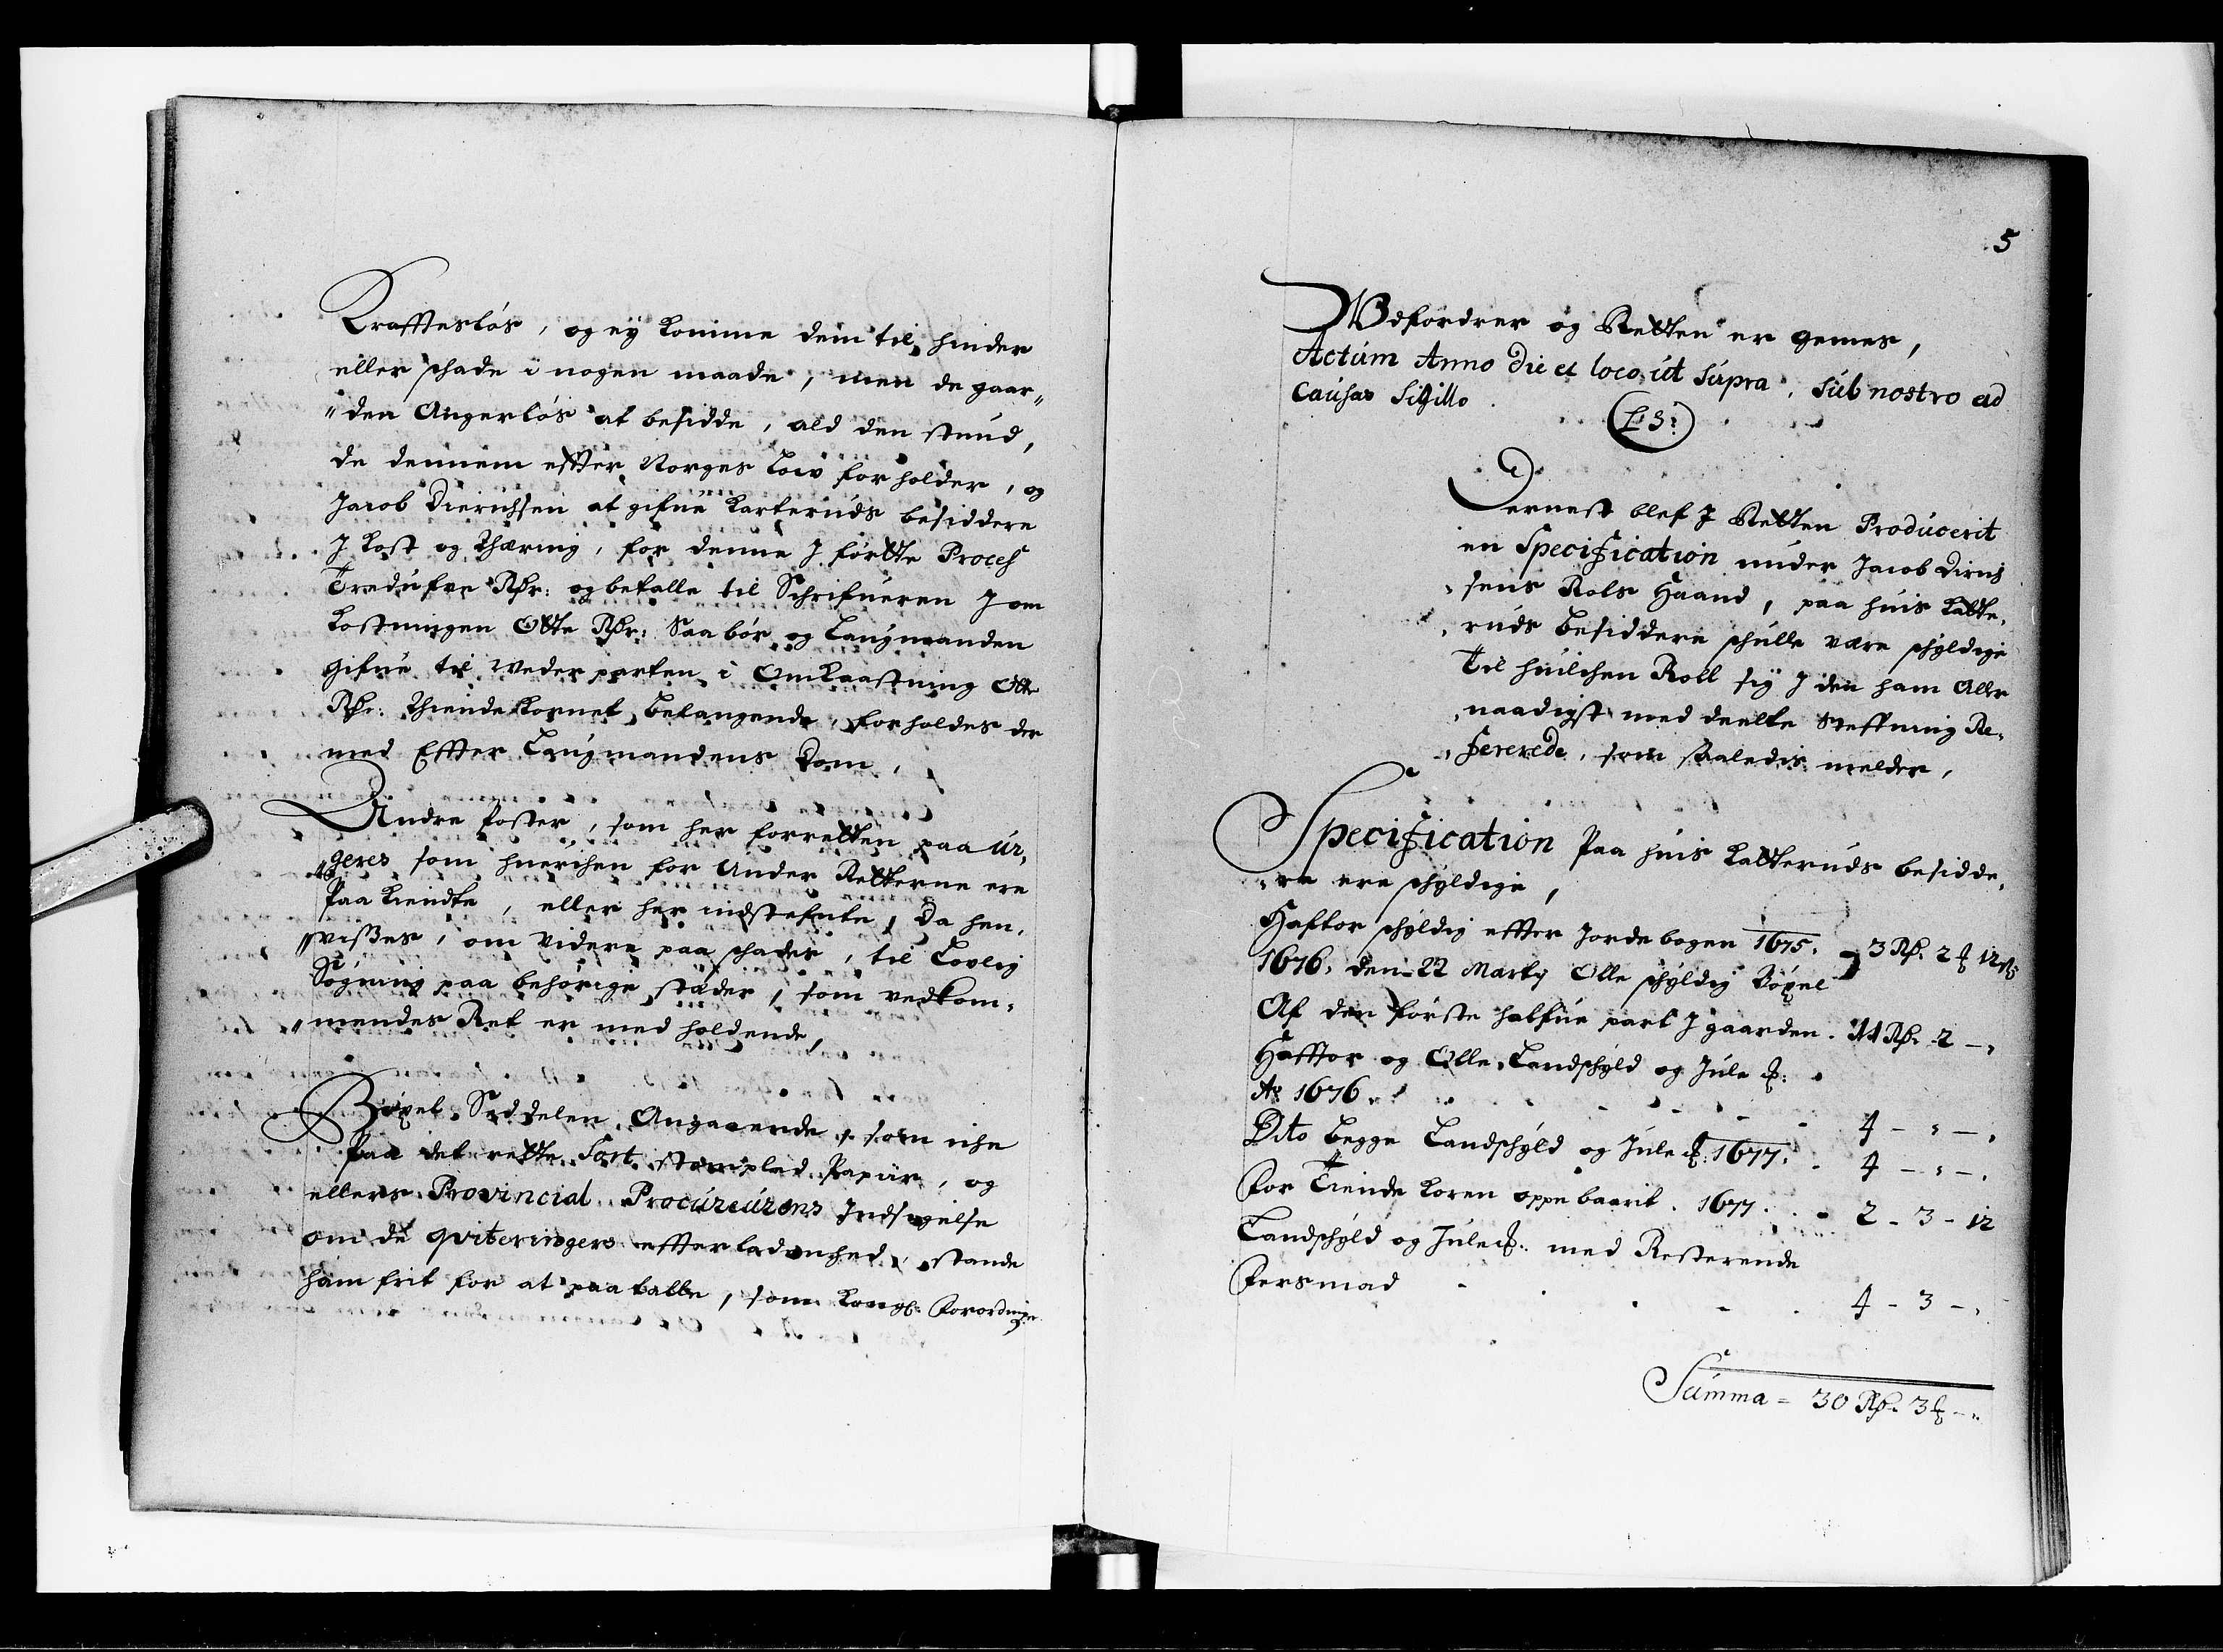 Krafftesløs, og eÿ komme dem til hinder
eller schade i nogen maade, men de gaar„
„den Angerløs at besidde, ald den stund,
de dennem effter Norges Low forholder, og
Jacob Dierichsen at gifue Karteruds besiddere
J Kost og Thæring, for denne J førte Proces
Tredufve Rdr: og betalle til Schrifueren J om
kostningen Otte Rdr: Saa bør og Laugmanden
gifue til wederparten i Omkaastning Otte
Rdr: Thiende kornet belangende, forholdes der
med Effter Laugmandens Dom,
Andre Poster, som her for retten paa ur,
„geres som huerchen for Under Retterne ere
Paa kiendte, eller her indstefnte, da hen,
„visses, om videre paa schades, til Lovlig
Søgning paa behørige stæder, som vedkom,
„mendes Ret er med holdende,
Bøxel Seddelen Angaaende, som iche
Paa det rette Sort stempled Papiir, og
ellers Provincial Procureurens Indsigelse
om de qviteringers effterladenhed, stande
ham frit for at paatalle, som Kongl: Forordninger
5
Udfordrer og Retten er gemes,
Actum Anno die et loco ut supra, sub nostro ad
Causas Sigillo.
(L S:)
Dernest blef J Retten Producerit
en Specification under Jacob Dirich
„sens Rols Haand, paa huis Katte,
„ruds Besiddere schulle være schyldige
Til huilchen Roll sig J den ham Aller
„naadigst med deelte Steffning Re,
„fererede, som saaledis melder,
Specification Paa huis Katteruds besidde,
„re ere schyldige,
Haftor schyldig effter Jordebogen 1675. 3 Rdr. 2 ₰ 12 s
1676, den 22 Martij Olle schyldig Bøxel
Af den første halfue part J gaarden. 11 Rdr. 2 –„
Hafftor og Olle, Landschyld og Jule ₰:
Ao 1676. 4 – „ – „
Dito begge Landschyld og Jule ₰: 1677. 4 – „ – „
For Tiende koren oppebaarit. 1677. 2 – 3 – 12
Landschyld og Jule ₰: med Resterende
Forsmad 4 – 3 – „
Summa = 30 Rdr. 3 ₰ – „